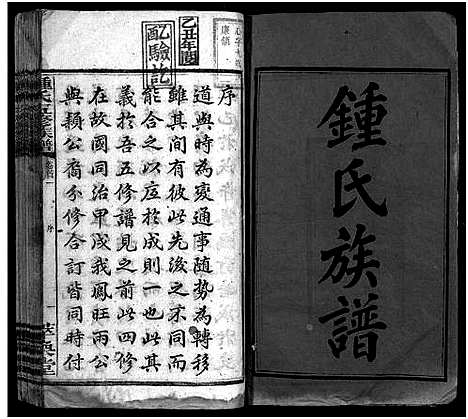 鍾氏族譜
乙丑年
配驗訖
序
道與時為変通事隨勢為轉移
雖其間有彼此先後之不同而
能合之以应於成則一也其
義於吾五修譜見之前此四修
在故國同治甲戌我鳳旺兩公
與穎公裔分修合訂皆同時付
鍾氏五修族譜
序
一